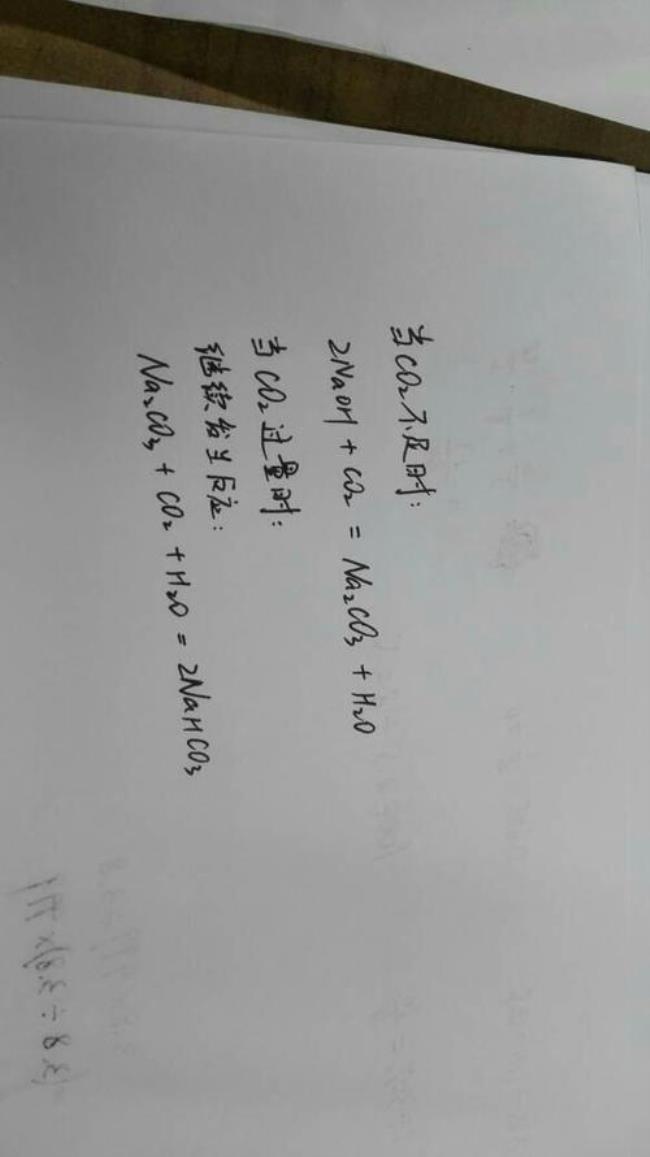 当CO₂不足时:
2NaOH + CO₂ = Na₂CO₃ + H₂O
当CO₂过量时:
继续发生反应:
Na₂CO₃ + CO₂ + H₂O = 2NaHCO₃